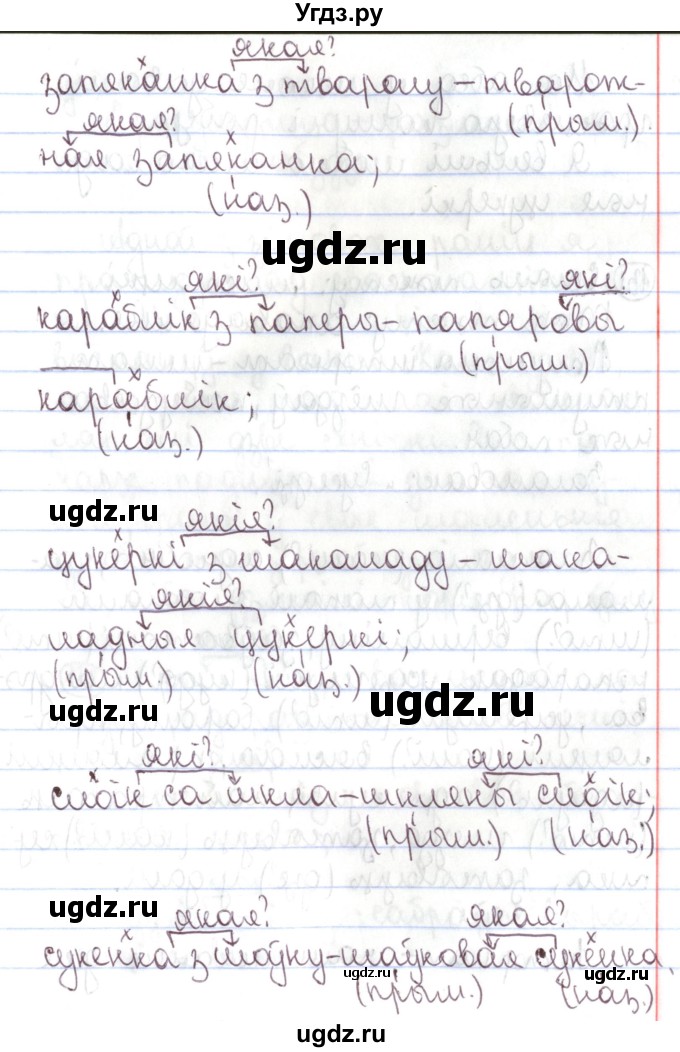 Угдз.ру
якая?
запяканка з тварагу – тварож-
якая? (прым.)
ная запяканка;
(наз.)
ugdz.ru
які? які?
караблік з паперы – папяровы
(прым.)
караблік;
(наз.)
ugdz.ru
якія?
цукеркі з шакаладу – шака-
якія?
ладныя цукеркі;
(прым.) (наз.)
ugdz.ru ugdz.ru
які? які?
слоік са шкла – шкляны слоік;
(прым.) (наз.)
ugdz.ru
якая? якая?
сукенка з шоўку – шаўковая сукенка.
(прым.) (наз.)
ugdz.ru ugdz.ru
ugdz.ru